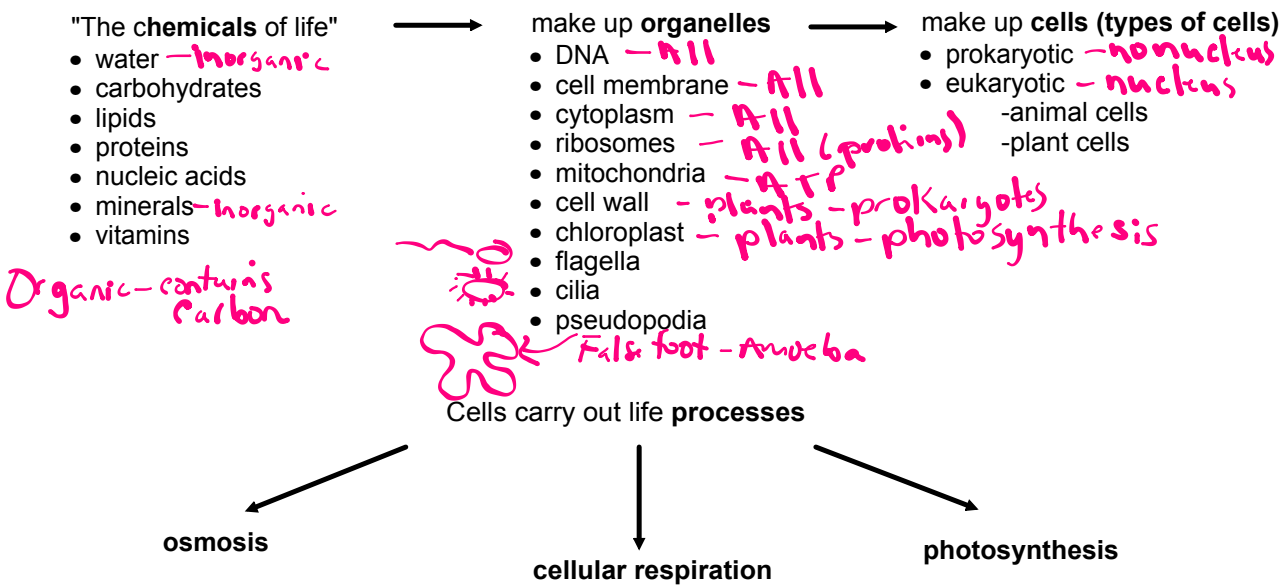 "The chemicals of life"
• water - inorganic
• carbohydrates
• lipids
• proteins
• nucleic acids
• minerals - inorganic
• vitamins
Organic - contains
Carbon
make up organelles
• DNA - All
• cell membrane - All
• cytoplasm - All
• ribosomes - All (protions)
• mitochondria - ATP
• cell wall - plants - prokaryotes
• chloroplast - plants - photosynthesis
• flagella
• cilia
• pseudopodia
False foot - Amoeba
make up cells (types of cells)
• prokaryotic - nonucleus
• eukaryotic - nucleus
-animal cells
-plant cells
Cells carry out life processes
osmosis
cellular respiration
photosynthesis